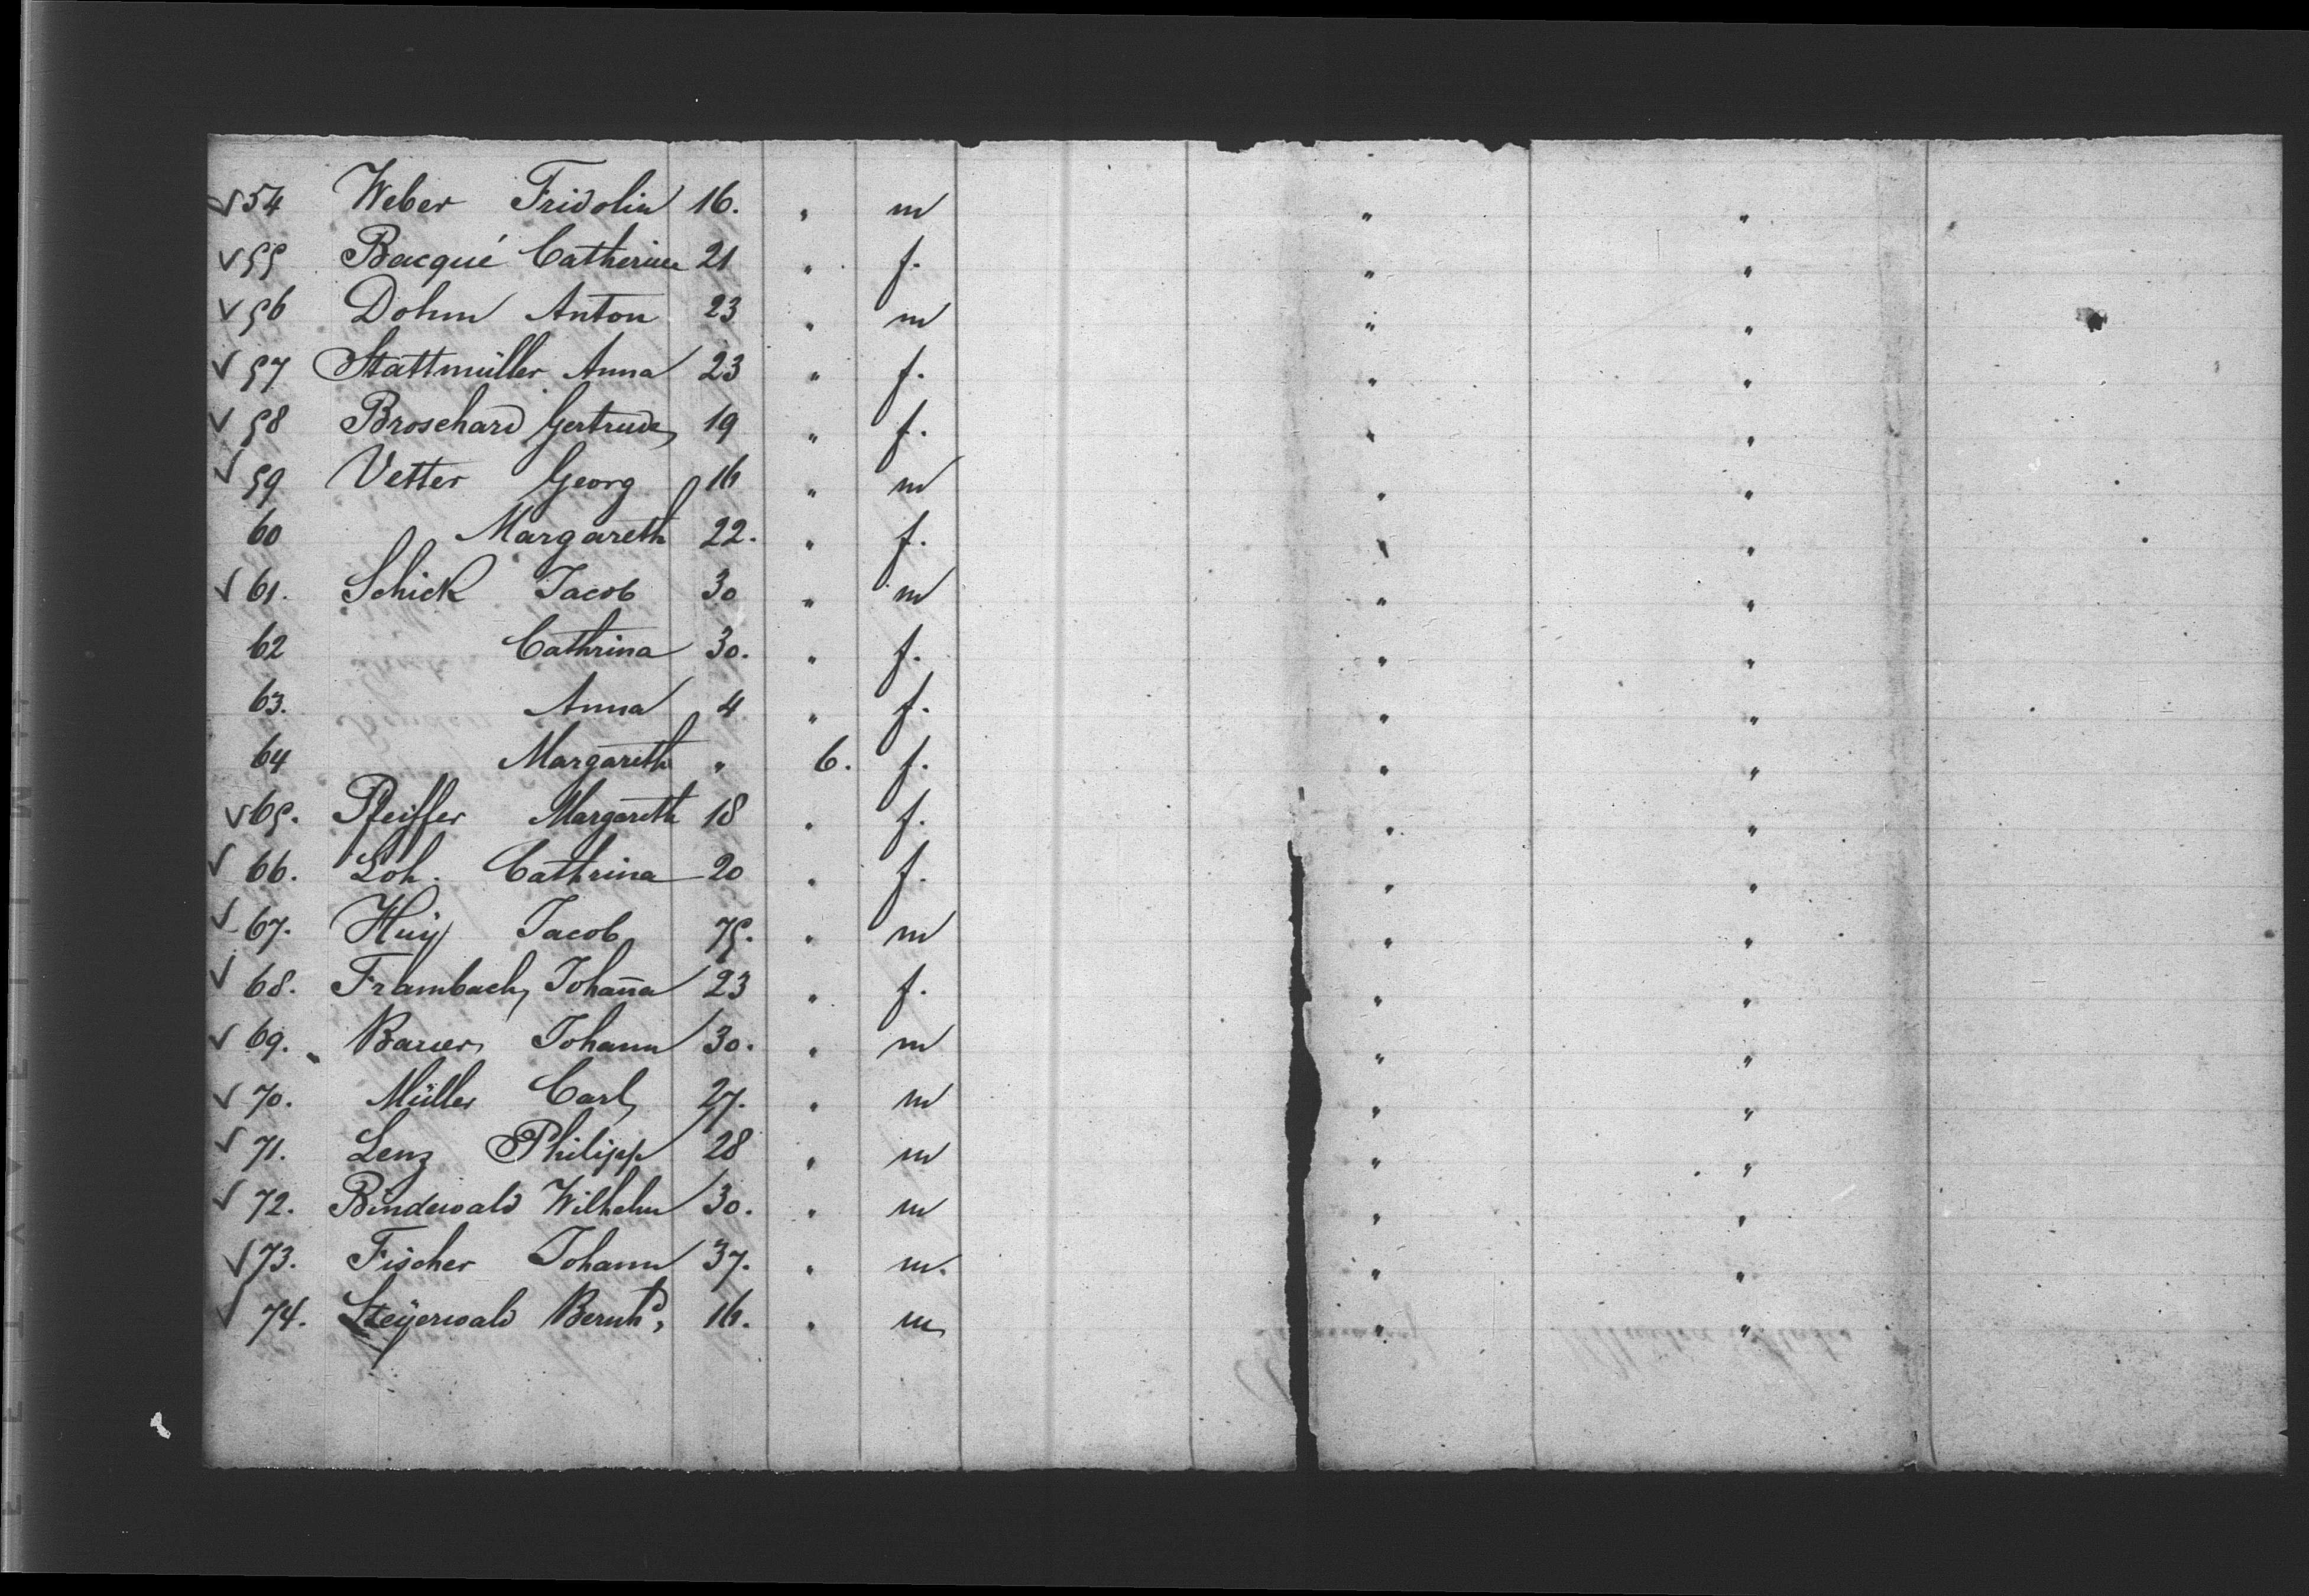 ✓ 54 Weber Fridolin 16. " m " "
✓ 55 Bacqué Catherine 21 " f. " "
✓ 56 Dohm Anton 23 " m " "
✓ 57 Stattmüller Anna 23 " f. " "
✓ 58 Broschard Gertrude 19 " f. " "
✓ 59 Vetter Georg 16 " m " "
60 Margareth 22. " f. " "
✓ 61. Schick Jacob 30 " m " "
62 Cathrina 30. " f. " "
63. Anna 4 " f. " "
64 Margareth " 6. f. " "
✓ 65. Pfeiffer Margareth 18 " f. " "
✓ 66. Loh. Cathrina 20 " f. " "
✓ 67. Huÿ Jacob 75. " m " "
✓ 68. Frambach, Joha͞na 23 " f. " "
✓ 69. Johann 30. " m " "
✓ 70. Müller Carl 27. " m " "
✓ 71. Lenz Philipp 28 " m " "
✓ 72. Bindewald Wilhelm 30. " m " "
✓ 73. Fischer Johann 37. " m. " "
✓ 74. Steÿerwald Bernhd, 16. " m " "